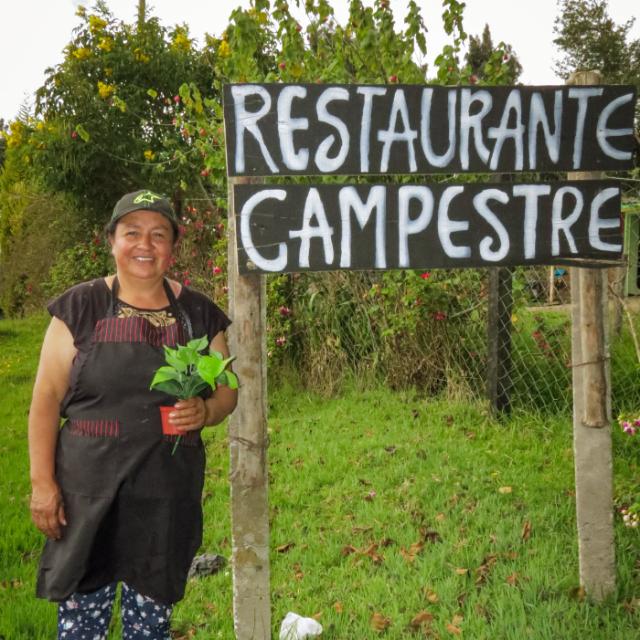 RESTAURANTE
CAMPESTRE